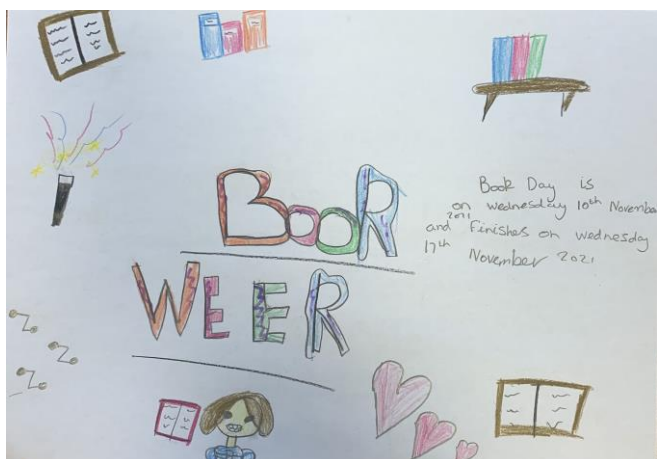 BOOK
WEEK
Book Day is
on Wednesday 10th November
2021
and Finishes on Wednesday
17th November 2021